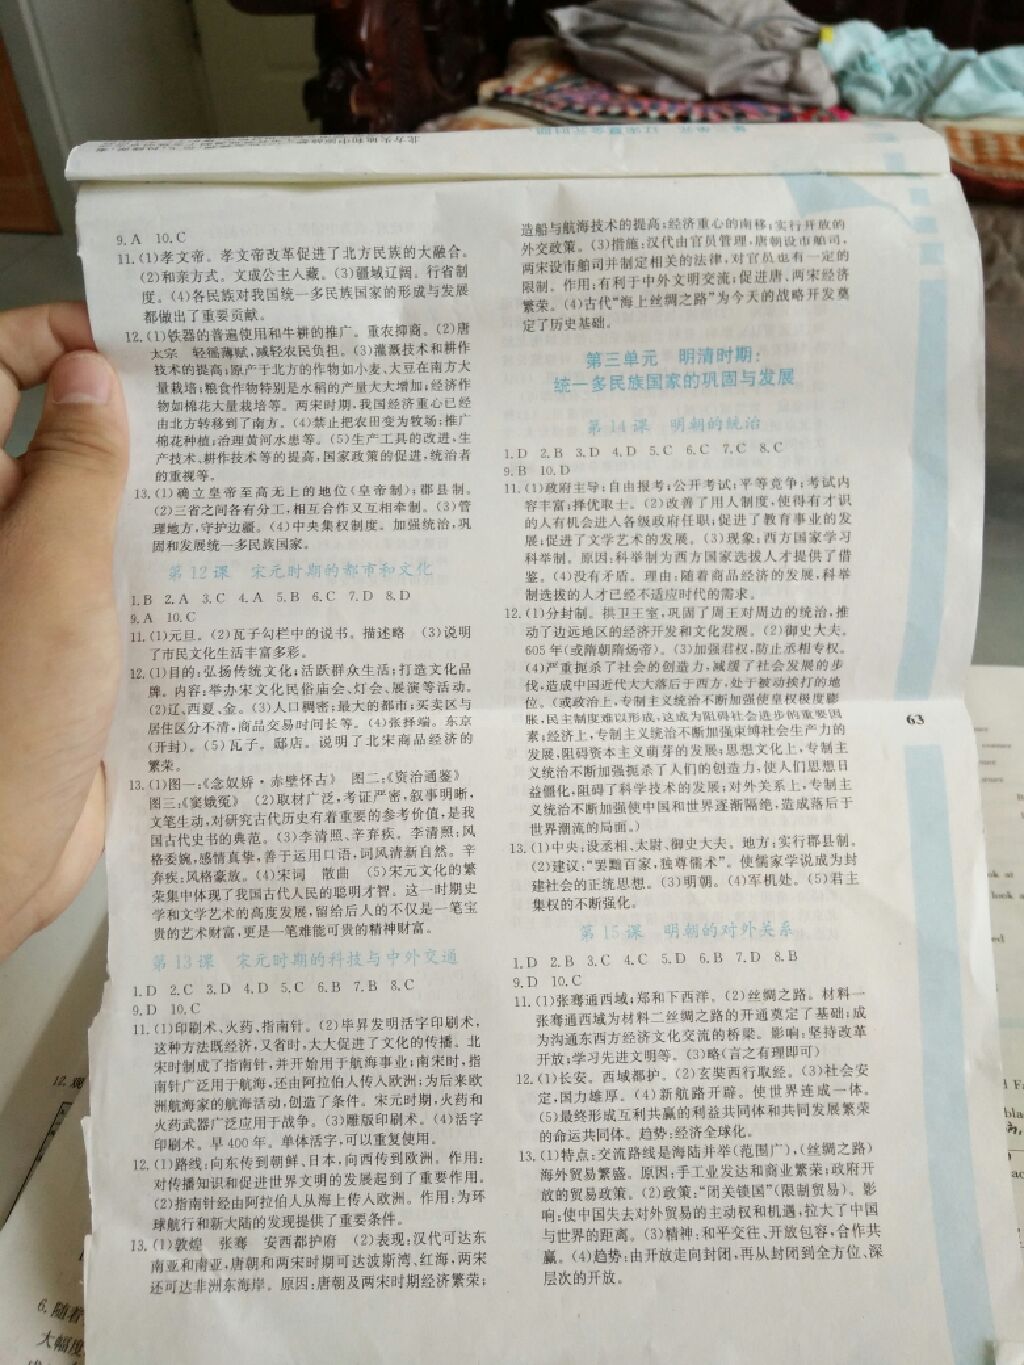 9. A 10. C
11. (1)孝文帝。孝文帝改革促进了北方民族的大融合。
(2)和亲方式。文成公主入藏。(3)疆域辽阔。行省制
度。(4)各民族对我国统一多民族国家的形成与发展
都做出了重要贡献。
12. (1)铁器的普遍使用和牛耕的推广。重农抑商。(2)唐
太宗 轻徭薄赋,减轻农民负担。(3)灌溉技术和耕作
技术的提高;原产于北方的作物如小麦、大豆在南方大
量栽培;粮食作物特别是水稻的产量大大增加;经济作
物如棉花大量栽培等。两宋时期,我国经济重心已经
由北方转移到了南方。(4)禁止把农田变为牧场;推广
棉花种植;治理黄河水患等。(5)生产工具的改进,生
产技术、耕作技术等的提高,国家政策的促进,统治者
的重视等。
13. (1)确立皇帝至高无上的地位(皇帝制);郡县制。
(2)三省之间各有分工,相互合作又互相牵制。(3)管
理地方,守护边疆。(4)中央集权制度。加强统治,巩
固和发展统一多民族国家。
第12课 宋元时期的都市和文化
1. B 2. A 3. C 4. A 5. B 6. C 7. D 8. D
9. A 10. C
11. (1)元旦。(2)瓦子勾栏中的说书。描述略 (3)说明
了市民文化生活丰富多彩。
12. (1)目的:弘扬传统文化;活跃群众生活;打造文化品
牌。内容:举办宋文化民俗庙会、灯会、展演等活动。
(2)辽、西夏、金。(3)人口稠密;最大的都市;买卖区与
居住区分不清,商品交易时间长等。(4)张择端。东京
(开封)。(5)瓦子。邸店。说明了北宋商品经济的
繁荣。
13. (1)图一:《念奴娇·赤壁怀古》 图二:《资治通鉴》
图三:《窦娥冤》 (2)取材广泛,考证严密,叙事明晰,
文笔生动,对研究古代历史有着重要的参考价值,是我
国古代史书的典范。(3)李清照、辛弃疾。李清照:风
格委婉,感情真挚,善于运用口语,词风清新自然。辛
弃疾:风格豪放。(4)宋词 散曲 (5)宋元文化的繁
荣集中体现了我国古代人民的聪明才智。这一时期史
学和文学艺术的高度发展,留给后人的不仅是一笔宝
贵的艺术财富,更是一笔难能可贵的精神财富。
第13课 宋元时期的科技与中外交通
1. D 2. C 3. D 4. D 5. C 6. B 7. B 8. C
9. D 10. C
11. (1)印刷术、火药、指南针。(2)毕昇发明活字印刷术,
这种方法既经济,又省时,大大促进了文化的传播。北
宋时制成了指南针,并开始用于航海事业;南宋时,指
南针广泛用于航海,还由阿拉伯人传入欧洲;为后来欧
洲航海家的航海活动,创造了条件。宋元时期,火药和
火药武器广泛应用于战争。(3)雕版印刷术。(4)活字
印刷术。早400年。单体活字,可以重复使用。
12. (1)路线:向东传到朝鲜、日本,向西传到欧洲。作用:
对传播知识和促进世界文明的发展起到了重要作用。
(2)指南针经由阿拉伯人从海上传入欧洲。作用:为环
球航行和新大陆的发现提供了重要条件。
13. (1)敦煌 张骞 安西都护府 (2)表现:汉代可达东
南亚和南亚,唐朝和两宋时期可达波斯湾、红海,两宋
还可达非洲东海岸。原因:唐朝及两宋时期经济繁荣;
造船与航海技术的提高;经济重心的南移;实行开放的
外交政策。(3)措施:汉代由官员管理,唐朝设市舶司,
两宋设市舶司并制定相关的法律,对官员也有一定的
限制。作用:有利于中外文明交流;促进唐、两宋经济
繁荣。(4)古代“海上丝绸之路”为今天的战略开发奠
定了历史基础。
第三单元 明清时期:
统一多民族国家的巩固与发展
第14课 明朝的统治
1. D 2. B 3. D 4. D 5. C 6. C 7. C 8. C
9. B 10. D
11. (1)政府主导;自由报考;公开考试;平等竞争;考试内
容丰富;择优取士。(2)改善了用人制度,使得有才识
的人有机会进入各级政府任职;促进了教育事业的发
展;促进了文学艺术的发展。(3)现象:西方国家学习
科举制。原因:科举制为西方国家选拔人才提供了借
鉴。(4)没有矛盾。理由:随着商品经济的发展,科举
制选拔的人才已经不适应时代的需求。
12. (1)分封制。拱卫王室,巩固了周王对周边的统治,推
动了边远地区的经济开发和文化发展。(2)御史大夫。
605年(或隋朝隋炀帝)。(3)加强君权,防止丞相专权。
(4)严重扼杀了社会的创造力,减缓了社会发展的步
伐,造成中国近代大大落后于西方,处于被动挨打的地
位。(或政治上,专制主义统治不断加强使皇权极度膨
胀,民主制度难以形成,这成为阻碍社会进步的重要因
素;经济上,专制主义统治不断加强束缚社会生产力的
发展,阻碍资本主义萌芽的发展;思想文化上,专制主
义统治不断加强扼杀了人们的创造力,使人们思想日
益僵化,阻碍了科学技术的发展;对外关系上,专制主
义统治不断加强使中国和世界逐渐隔绝,造成落后于
世界潮流的局面。)
13. (1)中央:设丞相、太尉、御史大夫。地方:实行郡县制。
(2)建议:“罢黜百家,独尊儒术”。使儒家学说成为封
建社会的正统思想。(3)明朝。(4)军机处。(5)君主
集权的不断强化。
第15课 明朝的对外关系
1. D 2. B 3. C 4. C 5. D 6. B 7. D 8. B
9. D 10. C
11. (1)张骞通西域;郑和下西洋。(2)丝绸之路。材料一
张骞通西域为材料二丝绸之路的开通奠定了基础;成
为沟通东西方经济文化交流的桥梁。影响:坚持改革
开放;学习先进文明等。(3)略(言之有理即可)
12. (1)长安。西域都护。(2)玄奘西行取经。(3)社会安
定,国力雄厚。(4)新航路开辟。使世界连成一体。
(5)最终形成互利共赢的利益共同体和共同发展繁荣
的命运共同体。趋势:经济全球化。
13. (1)特点:交流路线是海陆并举(范围广),(丝绸之路)
海外贸易繁盛。原因:手工业发达和商业繁荣;政府开
放的贸易政策。(2)政策:“闭关锁国”(限制贸易)。影
响:使中国失去对外贸易的主动权和机遇,拉大了中国
与世界的距离。(3)精神:和平交往、开放包容,合作共
赢。(4)趋势:由开放走向封闭,再从封闭到全方位、深
层次的开放。
63
12.
6. 随着
大幅度